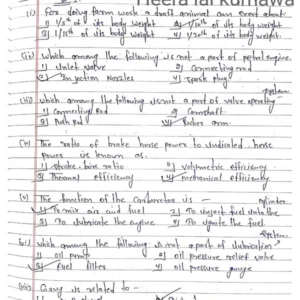 Heera lal kumawa
(i) For doing farm work a draft animal can exert about
1) 1/5th of its body weight 2) 1/10th of its body weight
3) 1/15th of its body weight 4) 1/20th of its body weight
(ii) which among the following is not a part of petrol engine.
1) Inlet Valve 2) Connecting rod
3) Injection Nozzles 4) spark plug
(iii) which among the following is not a part of valve operating
system
1) Connecting Rod 2) Camshaft
3) Push Rod 4) Rocker arm
(iv) The ratio of brake horse power to indicated horse
power is known as.
1) stroke-bore ratio 2) volumetric efficiency
3) Thermal efficiency 4) mechanical efficiency
(v) The function of the carburetor is -
1) To mix air and fuel 2) To inject fuel into the
cylinder
3) To lubricate the engine 4) To ignite the fuel
which among the following is not a part of lubrication
system
1) oil 2) oil pressure relief valve
3) fuel filter 4) oil pressure gauge
(vii) is related to -